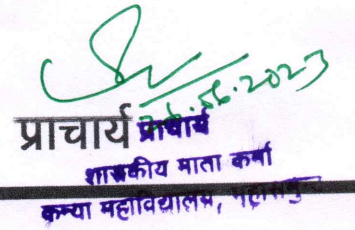 26.06.2023
प्राचार्य प्राचार्य
शासकीय माता कर्मा
कन्या महाविद्यालय, महासमुन्द